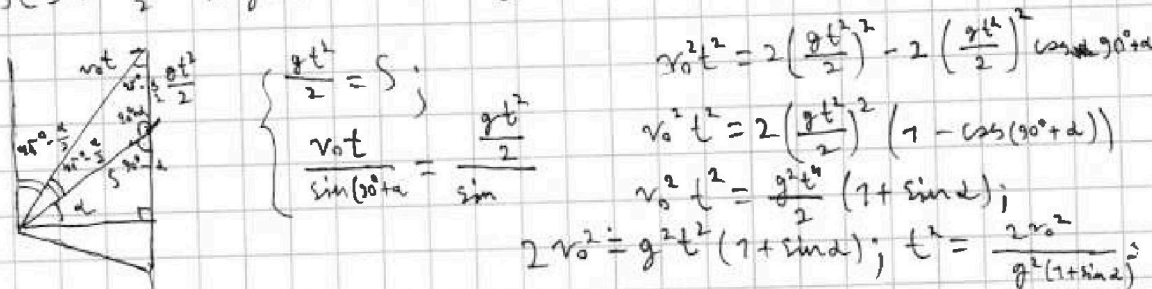 v₀t
gt²/2
45° - α/2
45° - α/2
S
α
{ gt²/2 = S ;
v₀t / sin(90°+α = (gt²/2) / sin
v₀²t² = 2(gt²/2)² - 2(gt²/2)² cos 90°+α
v₀²t² = 2(gt²/2)² (1 - cos(90°+α))
v₀²t² = g²t⁴/2 (1 + sinα);
2v₀² = g²t²(1+sinα); t² = 2v₀² / g²(1+sinα)